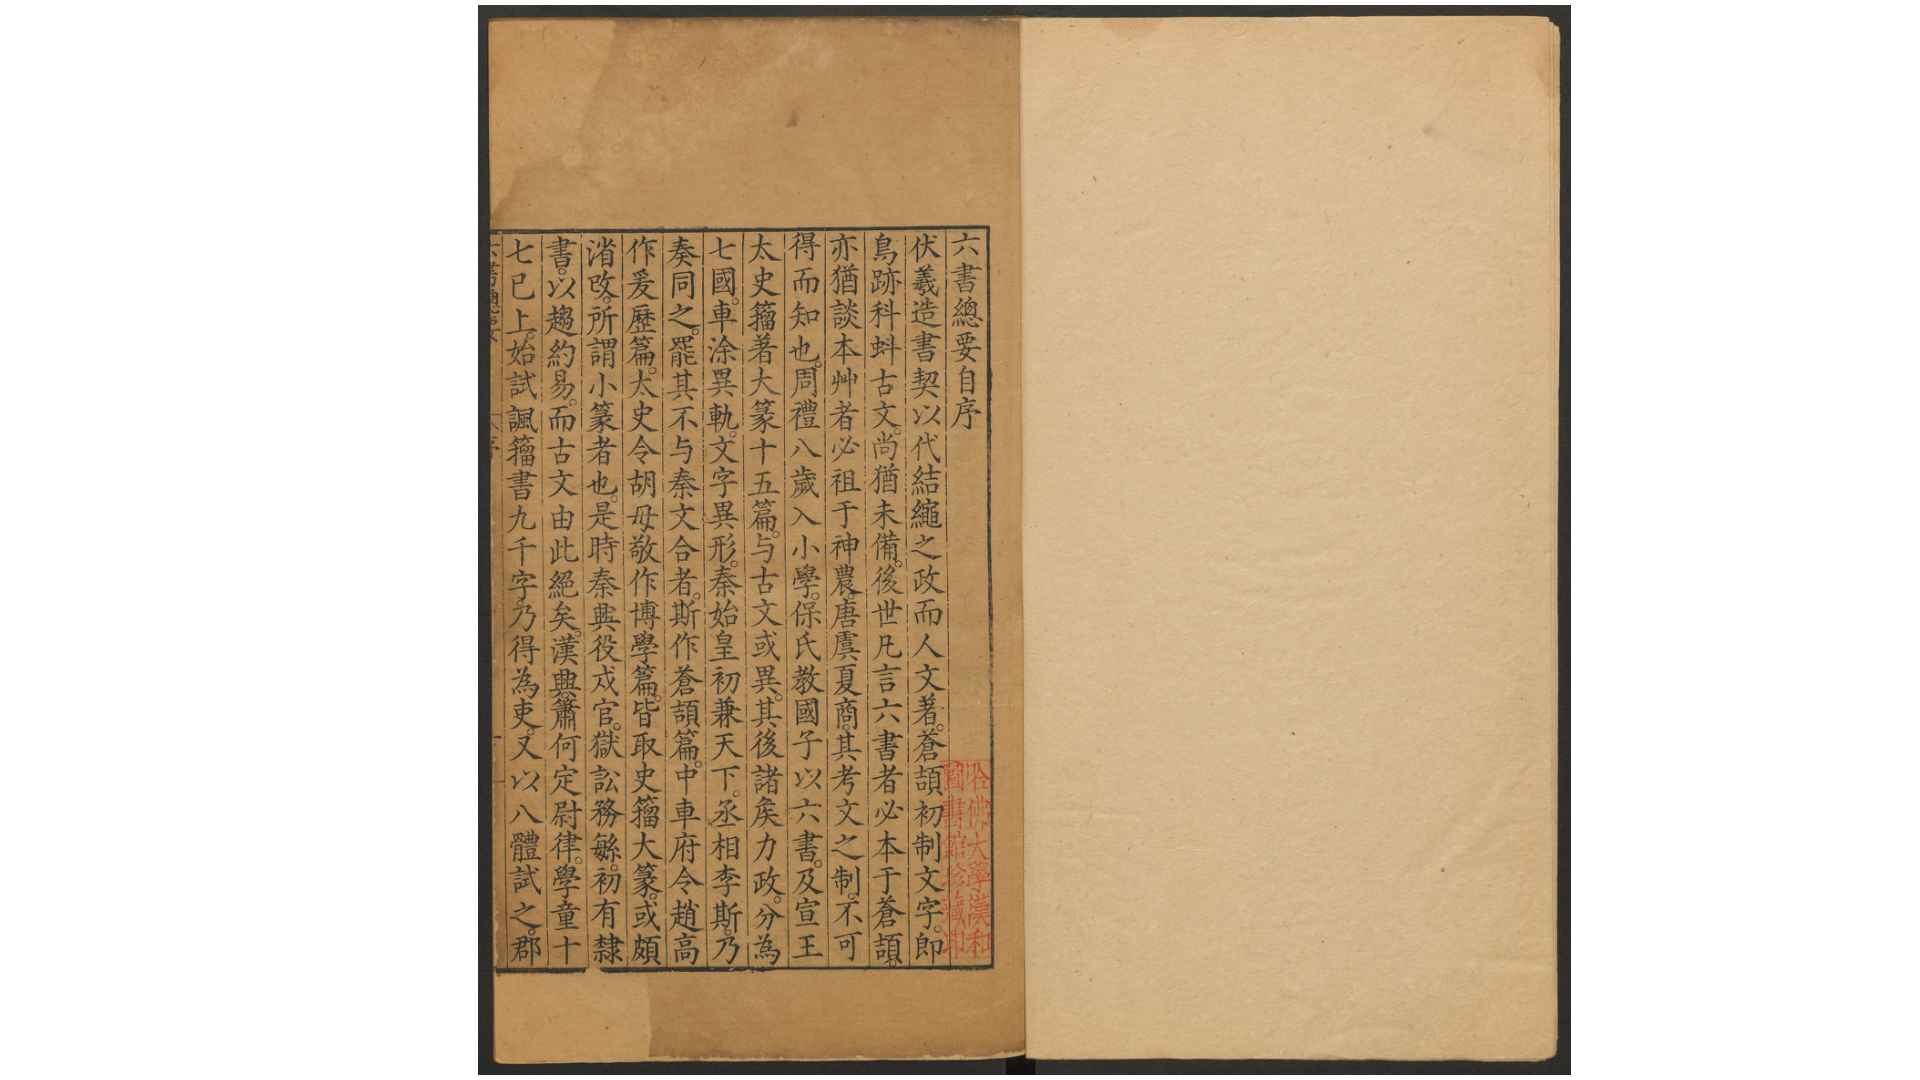 六書總要自序
伏羲造書契以代結繩之政而人文著。蒼頡初制文字。即
鳥跡科蚪古文。尚猶未備。後世凡言六書者必本于蒼頡。
亦猶談本艸者必祖于神農。唐虞夏商。其考文之制。不可
得而知也。周禮八歲入小學。保氏教國子以六書。及宣王
太史籀著大篆十五篇。与古文或異。其後諸矦力政。分為
七國。車涂異軌。文字異形。秦始皇初兼天下。丞相李斯。乃
奏同之。罷其不与秦文合者。斯作蒼頡篇。中車府令趙高
作爰歷篇。太史令胡毋敬作博學篇。皆取史籀大篆。或頗
渻改。所謂小篆者也。是時秦興役戍官。獄訟務緐。初有隸
書。以趨約易。而古文由此絕矣。漢興蕭何定尉律。學童十
七已上。始試諷籀書九千字。乃得為吏。又以八體試之。郡
哈佛大學漢和
圖書館珍藏印